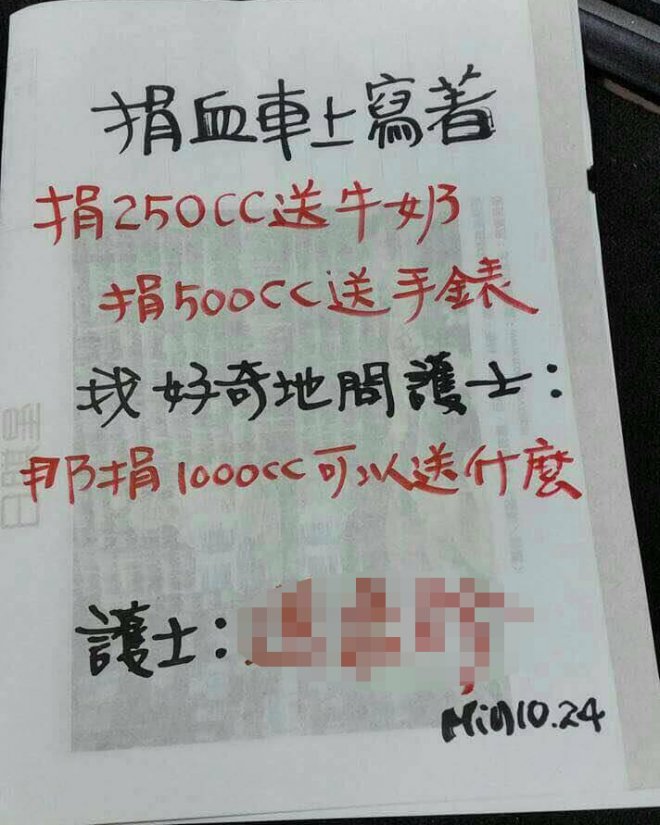 捐血車上寫著
捐250CC送牛奶
捐500CC送手錶
我好奇地問護士：
那捐1000CC可以送什麼
護士：
Min10.24